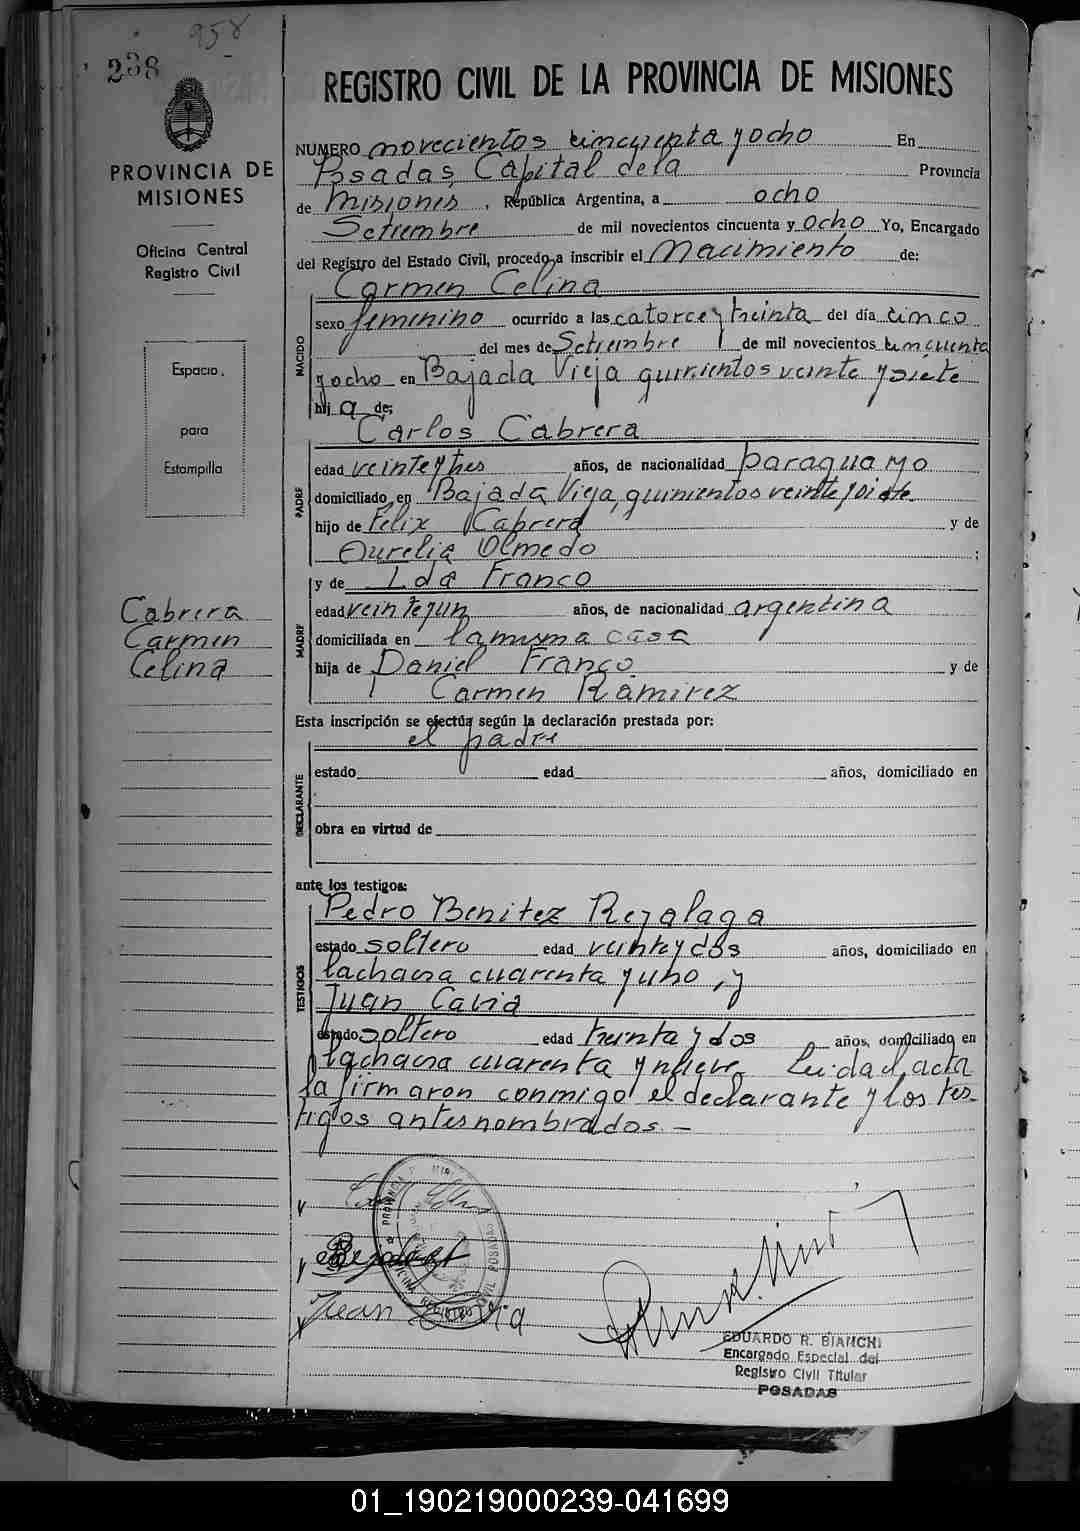 958
238
PROVINCIA DE
MISIONES
Oficina Central
Registro Civil
Espacio
para
Estampilla
Cabrera
Carmen
Celina
REGISTRO CIVIL DE LA PROVINCIA DE MISIONES
NUMERO novecientos cincuenta y ocho En
Posadas, Capital de la Provincia
de Misiones, República Argentina, a ocho
Setiembre de mil novecientos cincuenta y ocho Yo, Encargado
del Registro del Estado Civil, procedo a inscribir el Nacimiento de:
NACIDO
Carmen Celina
sexo femenino ocurrido a las catorce y treinta del día cinco
del mes de Setiembre de mil novecientos cincuenta
y ocho en Bajada Vieja quinientos veinte y siete
hij a de:
PADRE
Carlos Cabrera
edad veinte y tres años, de nacionalidad paraguayo
domiciliado en Bajada Vieja, quinientos veinte y siete
hijo de Felix Cabrera y de
Aurelia Olmedo ;
MADRE
y de Lda Franco
edad veinte y un años, de nacionalidad argentina
domiciliada en la misma casa
hija de Daniel Franco y de
Carmen Ramirez
Esta inscripción se efectúa según la declaración prestada por:
DECLARANTE
el padre
estado edad años, domiciliado en
obra en virtud de
ante los testigos:
TESTIGOS
Pedro Benitez Rejalaga
estado soltero edad veinte y dos años, domiciliado en
la chacra cuarenta y uno, y
Juan Cavia
estado soltero edad treinta y dos años, domiciliado en
la chacra cuarenta y nueve. Leida el acta
la firmaron conmigo el declarante y los tes-
tigos antes nombrados.-
Juan Cavia
EDUARDO R. BIANCHI
Encargado Especial del
Registro Civil Titular
POSADAS
01_190219000239-041699